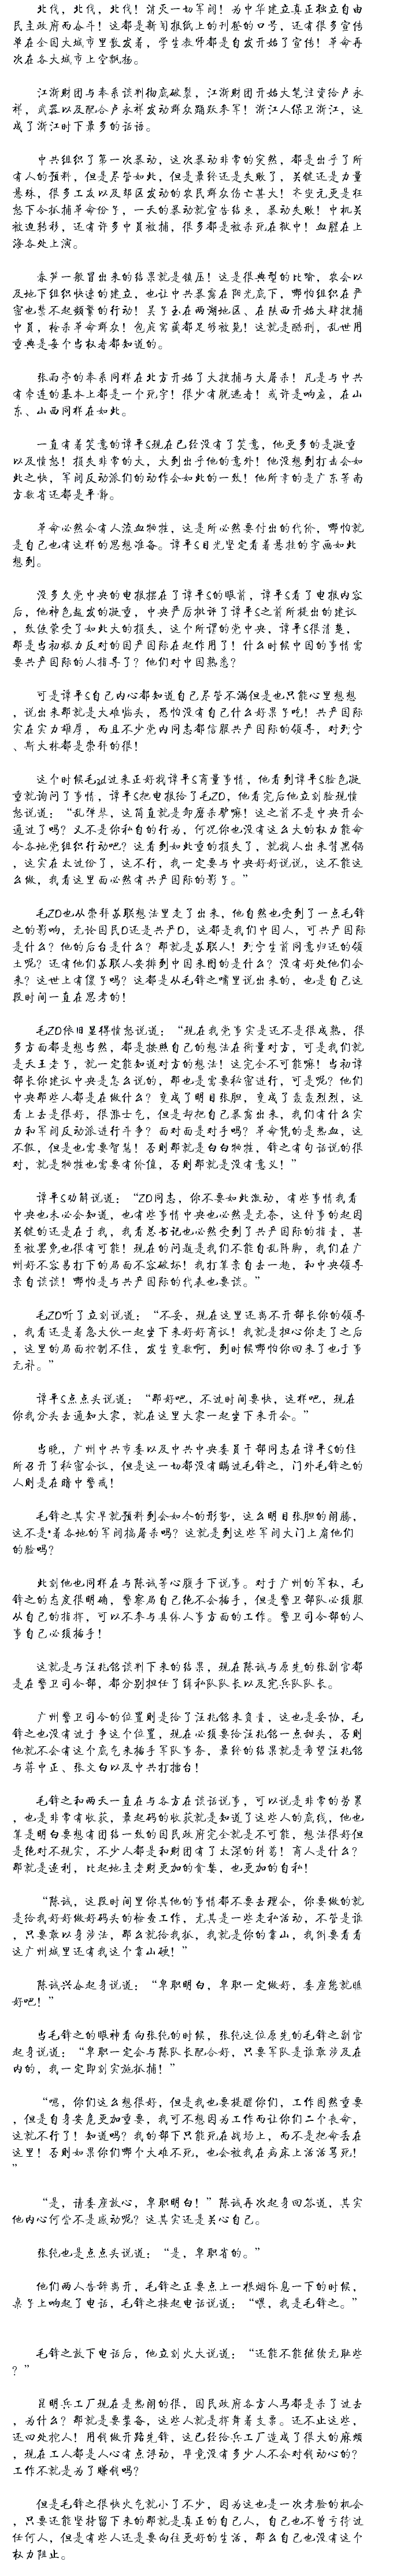 北伐，北伐，北伐！消灭一切军阀！为中华建立真正独立自由
民主政府而奋斗！这都是新闻报纸上的刊登的口号，还有很多宣传
单在全国大城市里散发着，学生教师都是自发开始了宣传！革命再
次在各大城市上空飘扬。
江浙财团与奉系谈判彻底破裂，江浙财团开始大笔注资给卢永
祥，武器以及配合卢永祥发动群众踊跃参军！浙江人保卫浙江，这
成了浙江时下最多的话语。
中共组织了第一次暴动，这次暴动非常的突然，都是出乎了所
有人的预料，但是尽管如此，但是最终还是失败了，关键还是力量
悬殊，很多工友以及郊区发动的农民群众伤亡甚大！齐燮元更是狂
怒下令抓捕革命份子，一天的暴动就宣告结束，暴动失败！中机关
被迫转移，还有许多中員被捕，很多都是被杀死在狱中！血腥在上
海各处上演。
春笋一般冒出来的结果就是镇压！这是很典型的比喻，农会以
及地下组织快速的建立，也让中共暴露在阳光底下，哪怕组织在严
密也禁不起频繁的行动！吴子玉在两湖地区、在陕西开始大肆搜捕
中員，枪杀革命群众！包庇窝藏都足够被毙！这就是酷刑，乱世用
重典是每个当权者都知道的。
张雨亭的奉系同样在北方开始了大搜捕与大屠杀！凡是与中共
有牵连的基本上都是一个死字！很少有脱逃者！或许是响应，在山
东、山西同样在如此。
一直有着笑意的谭平S现在已经没有了笑意，他更多的是凝重
以及愤怒！损失非常的大，大到出乎他的意外！他没想到打击会如
此之快，军阀反动派们的动作会如此的一致！他所幸的是广东等南
方数省还都是平静。
革命必然会有人流血牺牲，这是所必然要付出的代价，哪怕就
是自己也有这样的思想准备。谭平S目光坚定看着悬挂的字画如此
想到。
没多久党中央的电报摆在了谭平S的眼前，谭平S看了电报内容
后，他神色越发的凝重，中央严厉批评了谭平S之前所提出的建议
，致使蒙受了如此大的损失，这个所谓的党中央，谭平S很清楚，
那是当初极力反对的国产国际在起作用了！什么时候中国的事情需
要共产国际的人指导了？他们对中国熟悉？
可是谭平S自己内心都知道自己尽管不满但是也只能心里想想
，说出来那就是大难临头，恐怕没有自己什么好果子吃！共产国际
实在实力雄厚，而且不少党内同志都信服共产国际的领导，对列宁
、斯大林都是崇拜的很！
这个时候毛zd过来正好找谭平S商量事情，他看到谭平S脸色凝
重就询问了事情，谭平S把电报给了毛ZD，他看完后他立刻脸现愤
怒说道：“乱弹琴，这简直就是卸磨杀驴嘛！这之前不是中央开会
通过了吗？又不是你私自的行为，何况你也没有这么大的权力能命
令各地党组织行动吧？这看到如此重的损失了，就找人出来背黑锅
，这实在太过份了，这不行，我一定要与中央好好说说，这不能这
么做，我看这里面必然有共产国际的影子。”
毛ZD也从崇拜苏联想法里走了出来，他自然也受到了一点毛锋
之的影响，无论国民D还是共产D，这都是我们中国人，可共产国际
是什么？他的后台是什么？那就是苏联人！列宁生前同意归还的领
土呢？还有他们苏联人安排到中国来图的是什么？没有好处他们会
来？这世上有傻子吗？这都是从毛锋之嘴里说出来的，也是自己这
段时间一直在思考的！
毛ZD依旧显得愤怒说道：“现在我党事实是还不是很成熟，很
多方面都是想当然，都是按照自己的想法在衡量对方，可是我们就
是天王老子，就一定能知道对方的想法！这完全不可能嘛！当初谭
部长你建议中央是怎么说的，那也是需要秘密进行，可是呢？他们
中央那些人都是在做什么？变成了明目张胆，变成了轰轰烈烈，这
看上去是很好，很涨士气，但是却把自己暴露出来，我们有什么实
力和军阀反动派进行斗争？面对面是对手吗？革命凭的是热血，这
不假，但是也需要智慧！否则那就是白白牺牲，锋之有句话说的很
对，就是牺牲也需要有价值，否则那就是没有意义！”
谭平S劝解说道：“ZD同志，你不要如此激动，有些事情我看
中央也未必会知道，也有些事情中央也必然是无奈，这件事的起因
关键的还是在于我，我看总书记也必然受到了共产国际的指责，甚
至被罢免也很有可能！现在的问题是我们不能自乱阵脚，我们在广
州好不容易打下的局面不容破坏！我打算亲自去一趟，和中央领导
亲自谈谈！哪怕是与共产国际的代表也要谈。”
毛ZD听了立刻说道：“不妥，现在这里还离不开部长你的领导
，我看还是着急大伙一起坐下来好好商议！我就是担心你走了之后
，这里的局面控制不住，发生变数啊，到时候哪怕你回来了也于事
无补。”
谭平S点点头说道：“那好吧，不过时间要快，这样吧，现在
你我分头去通知大家，就在这里大家一起坐下来开会。”
当晚，广州中共市委以及中共中央委员干部同志在谭平S的住
所召开了秘密会议，但是这一切都没有瞒过毛锋之，门外毛锋之的
人则是在暗中警戒！
毛锋之其实早就预料到会如今的形势，这么明目张胆的闹腾，
这不是*着各地的军阀搞屠杀吗？这就是到这些军阀大门上扇他们
的脸吗？
此刻他也同样在与陈诚等心腹手下说事。对于广州的军权，毛
锋之的态度很明确，警察局自己绝不会插手，但是警卫部队必须服
从自己的指挥，可以不参与具体人事方面的工作。警卫司令部的人
事自己必须插手！
这就是与汪兆铭谈判下来的结果，现在陈诚与原先的张副官都
是在警卫司令部，都分别担任了缉私队队长以及宪兵队队长。
广州警卫司令的位置则是给了汪兆铭来负责，这也是妥协，毛
锋之也没有过于争这个位置，现在必须要给汪兆铭一点甜头，否则
他就不会有这个底气来插手军队事务，最终的结果就是希望汪兆铭
与蒋中正、张文白以及中共打擂台！
毛锋之和两天一直在与各方在谈话说事，可以说是非常的劳累
，也是非常有收获，最起码的收获就是知道了这些人的底线，他也
算是明白要想有团结一致的国民政府完全就是不可能，想法很好但
是绝对不现实，不少人都是和财团有了太深的纠葛！商人是什么？
那就是逐利，比起地主老财更加的贪婪，也更加的自私！
“陈诚，这段时间里你其他的事情都不要去理会，你要做的就
是给我好好做好码头的检查工作，尤其是一些走私活动，不管是谁
，只要敢以身涉法，那么就给我抓，我就是你的靠山，我倒要看看
这广州城里还有我这个靠山硬！”
陈诚兴奋起身说道：“卑职明白，卑职一定做好，委座您就瞧
好吧！”
当毛锋之的眼神看向张纯的时候，张纯这位原先的毛锋之副官
起身说道：“卑职一定会与陈队长配合好，只要军队是谁敢涉及在
内的，我一定即刻实施抓捕！”
“嗯，你们这么想很好，但是我也要提醒你们，工作固然重要
，但是自身安危更加重要，我可不想因为工作而让你们二个丧命，
这就不行了！知道吗？我的部下只能死在战场上，而不是把命丢在
这里！否则如果你们哪个大难不死，也会被我在病床上活活骂死！
”
“是，请委座放心，卑职明白！”陈诚再次起身回答道，其实
他内心何尝不是感动呢？这其实还是关心自己。
张纯也是点点头说道：“是，卑职省的。”
他们两人告辞离开，毛锋之正要点上一根烟休息一下的时候，
桌子上响起了电话，毛锋之接起电话说道：“喂，我是毛锋之。”
毛锋之放下电话后，他立刻火大说道：“还能不能继续无耻些
？”
昆明兵工厂现在是热闹的很，国民政府各方人马都是杀了过去
，为什么？那就是要装备，这些人就是挥舞着支票。还不止这些，
还四处挖人！用钱做开路先锋，这已经给兵工厂造成了很大的麻烦
，现在工人都是人心有点浮动，毕竟没有多少人不会对钱动心的？
工作不就是为了赚钱吗？
但是毛锋之很快火气就小了不少，因为这也是一次考验的机会
，只要还能坚持留下来的那就是真正的自己人，自己也不曾亏待过
任何人，但是有些人还是要向往更好的生活，那么自己也没有这个
权力阻止。